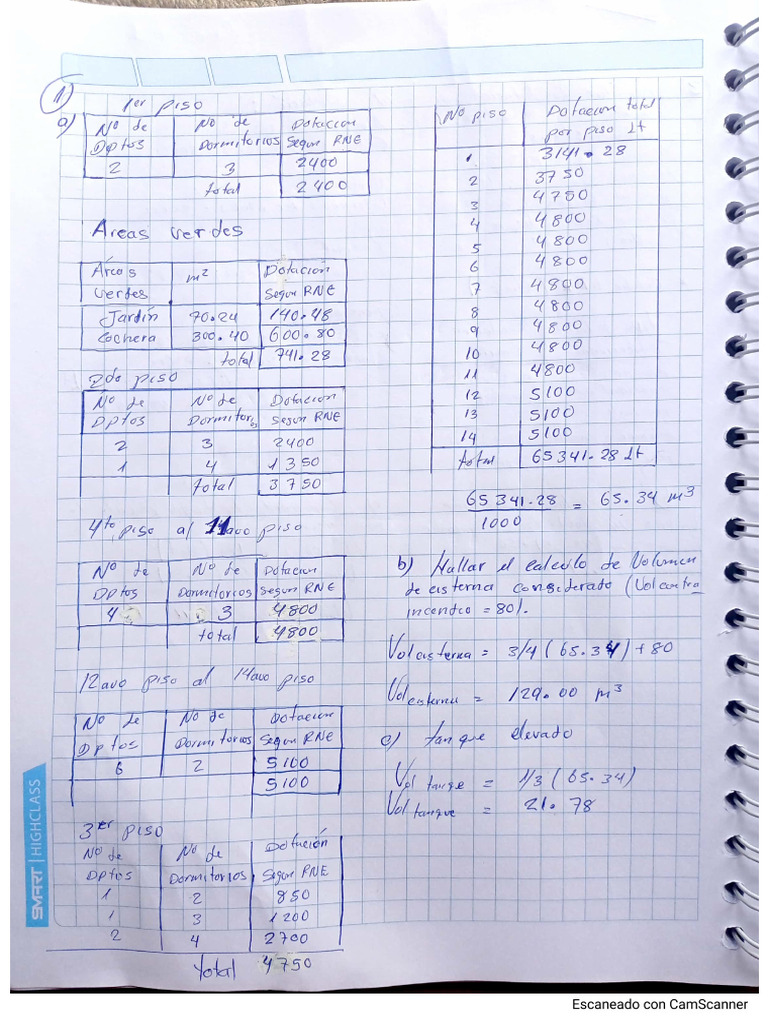 1)
1er piso
a)
Nº de Dptos Nº de Dormitorios Dotacion Segun RNE
2 3 2400
total 2400
Areas verdes
Areas verdes m² Dotación Segun RNE
Jardín 70.24 140.48
Cochera 300.40 600.80
total 741.28
2do piso
Nº de Dptos Nº de Dormitor. Dotacion Segun RNE
2 3 2400
1 4 1350
total 3750
4to piso al 11avo piso
Nº de Dptos Nº de Dormitorios Dotacion Segun RNE
4 3 4800
total 4800
12avo piso al 14avo piso
Nº de Dptos Nº de Dormitorios Dotacion Segun RNE
6 2 5100
5100
3er piso
Nº de Dptos Nº de Dormitorios Dotación Segun RNE
1 2 850
1 3 1200
2 4 2700
total 4750
Nº piso Dotacion total por piso lt
1 3141.28
2 3750
3 4750
4 4800
5 4800
6 4800
7 4800
8 4800
9 4800
10 4800
11 4800
12 5100
13 5100
14 5100
total 65341.28 lt
65341.28 / 1000 = 65.34 m³
b) Hallar el calculo de Volumen
de cisterna considerado (Vol contra
incendio = 80).
Vol cisterna = 3/4 (65.34) + 80
Vol cisterna = 129.00 m³
c) tanque elevado
Vol tanque = 1/3 (65.34)
Vol tanque = 21.78
SMART | HIGHCLASS
Escaneado con CamScanner